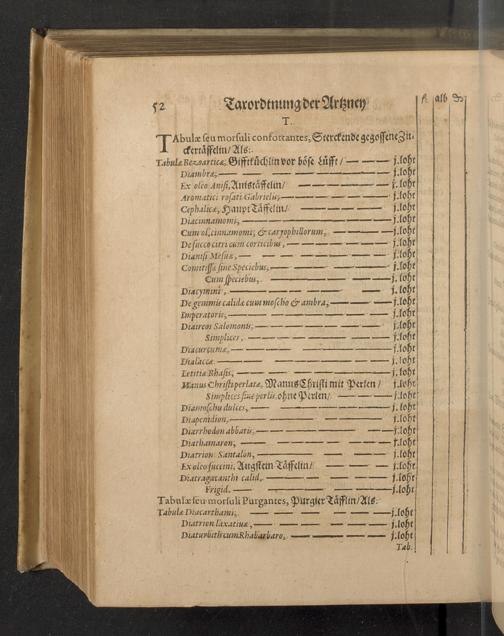 52 Taxordtnung der Artzney fl. alb
T.
TAbulæ seu morsuli confortantes, Sterckende gegossene Zu-
ckertäffelin / Als:
Tabulæ Bezoarticæ, Gifftküchlin vor böse Lüfft / — — j. loht
Diambræ, — — — — j. loht
Ex oleo Anisi, Anistäffelin / — — — j. loht
Aromatici rosati Gabrielis, — — — — j. loht
Cephalicæ, Haupt Täffelin / — — — — j. loht
Diacinnamomi, — — — — — j. loht
Cum ol. cinnamomi, & caryophillorum, — — — j. loht
De succo citri cum corticibus, — — — — j. loht
Dianisi Mesuæ, — — — — — j. loht
Comitissæ sine Speciebus, — — — — j. loht
Cum speciebus, — — — — j. loht
Diacymini, — — — — j. loht
De gemmis calidæ cum moscho & ambra, — — — j. loht
Imperatoris, — — — — — j. loht
Diaireos Salomonis, — — — — j. loht
Simplices, — — — — j. loht
Diacurcumæ, — — — — j. loht
Dialaccæ — — — — j. loht
Letitiæ Rhasis, — — — — j. loht
Manus Christi perlatæ, Manus Christi mit Perlen / j. loht
Simplices sine perlis. ohne Perlen / — — — j. loht
Diamoschu dulces, — — — — j. loht
Diapenidion, — — — — j. loht
Diarrhodon abbatis, — — — — j. loht
Diathamaron, — — — — j. loht
Diatrion Santalon, — — — — j. loht
Ex oleo succini, Augstein Täffelin / — — — j. loht
Diatragacanthi calid. — — — — j. loht
Frigid. — — — — j. loht
Tabulæ seu morsuli Purgantes, Purgier Täfflin / Als:
Tabulæ Diacarthami, — — — — j. loht
Diatrion laxativæ, — — — — j. loht
Diaturbith cum Rhabarbaro, — — — j. loht
Tab.